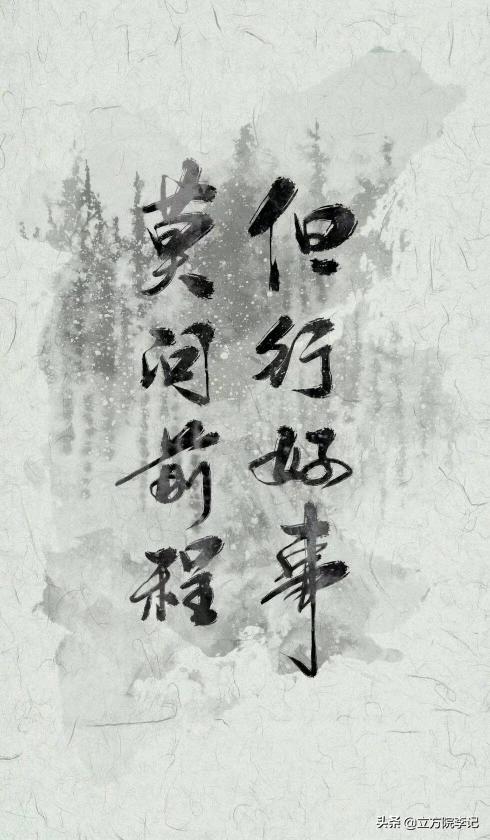 但行好事
莫问前程
头条 @立方院李记